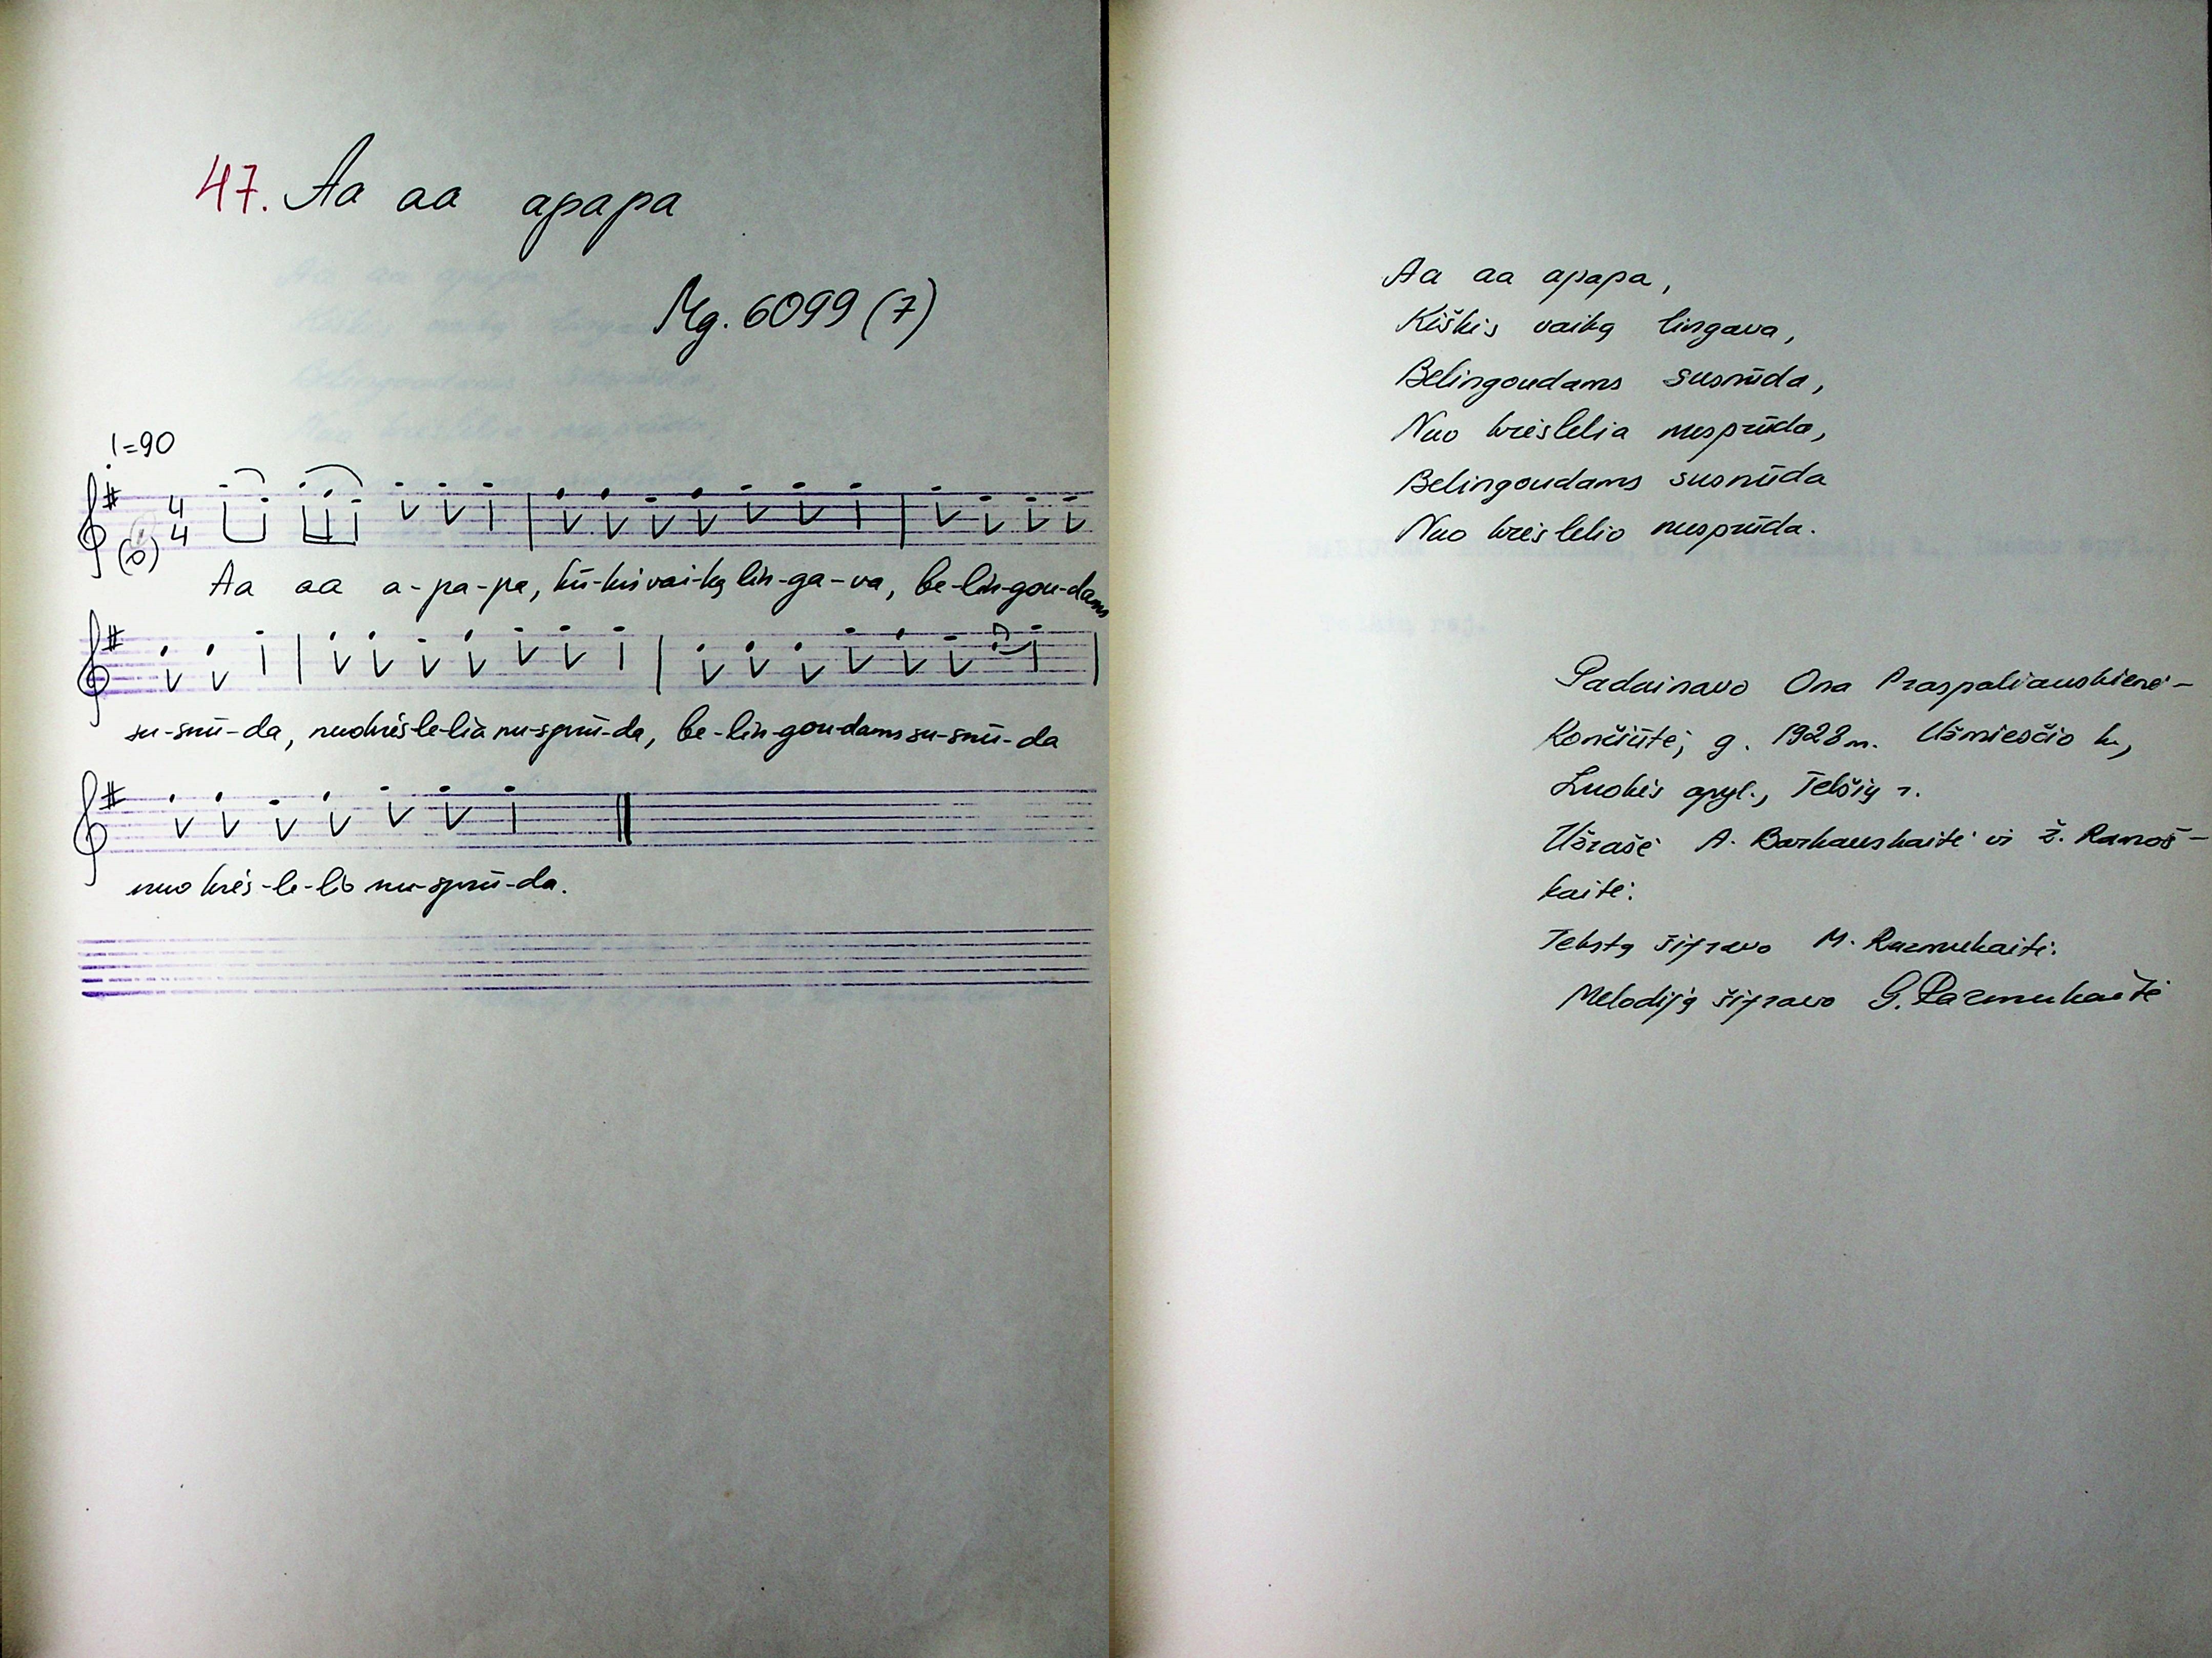 47. Aa aa apapa
Mg. 6099 (7)
♩=90
4
4
Aa aa a-pa-pa, kiš-kis vai-ką lin-ga-va, be-lin-gou-dams
su-snū-da, nuo krės-le-lia nu-sprū-da, be-lin-gou-dams su-snū-da
nuo krės-le-lio nu-sprū-da.
Aa aa apapa,
Kiškis vaiką lingava,
Belingoudams susnūda,
Nuo krėslelia nusprūda,
Belingoudams susnūda
Nuo krėslelio nusprūda.
Padainavo Ona Praspaliauskienė-
Končiūtė, g. 1928 m. Užmiesčio k.,
Luokės apyl., Telšių r.
Užrašė A. Barkauskaitė ir Ž. Ramoš-
kaitė.
Tekstą šifravo M. Razmukaitė.
Melodiją šifravo G. Razmukaitė